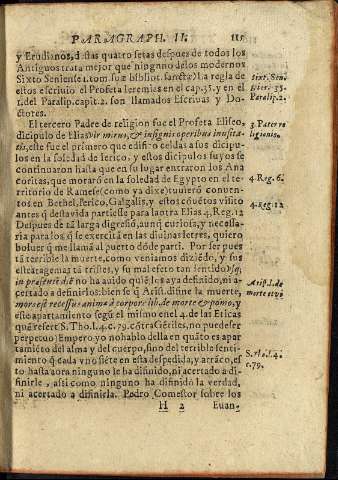 PARAGRAPH. II. 115
y Erudianos, d̃ stas quatro setas despues de todos los
Antiguos trata mejor que ningnno de los modernos
Sixto Seniense 1. tom. suæ bibliot. sanctæ. La regla de
estos escriuio el Profeta Ieremias en el cap. 35. y en el
1. del Paralip. capit. 2. son llamados Escriuas y Do-
ctores.
El tercero Padre de religion fue el Profeta Eliseo,
dicipulo de Elias vir mirus, & insignis operibus inusita-
tis, este fue el primero que edifico celdas a sus dicipu-
los en la soledad de Ierico, y estos dicipulos suyos se
continuaron hasta que en su lugar entraron los Ana
coritas, que moraron en la soledad de Egypto en el te-
rritorio de Ramese (como ya dixe) tuuierō conuen-
tos en Bethel, Ierico, Galgalis, y estos cōuētos visito
antes q̃ desta vida partiesse para la otra Elias 4. Reg. 12
Despues de tā larga digresiō, aunq̃ curiosa, y necessa-
ria para los q̃ se exercitā en las diuinas letras, quiero
boluer q̃ me llamā al puerto dōde parti. Por ser pues
tā terrible la muerte, como veniamos diziēdo, y sus
estratagemas tā tristes, y su mal efeto tan sentido
in presente diē no ha auido quiē los aya definido, ni a-
certado a definirlos: bien se q̃ Arist. difine la muerte,
mors est recessus animæ à corpore lib. de morte & pomo, y
este apartamiento segū el mismo en el 4. de las Eticas
que refert S. Tho. l. 4. c. 79. cōtra Gētiles, no puede ser
perpetuo: Empero yo no hablo della en quāto es apar
tamiēto del alma y del cuerpo, sino del terrible senti-
miento q̃ cada vno siēte en esta despedida, y arrāco, es-
to hasta aora ninguno le ha difinido, ni acertado a di-
finirle, asi como ninguno ha difinido la verdad,
ni acertado a difinirla. Pedro Comestor sobre los
H 2 Euan-
sixt. Sen.
35.
Paralip. 2.
3. Pater re
ligionis.
4. Reg. 6.
4. Reg. 12
Arist. l. de
morte
S. l. 4.
c. 79.